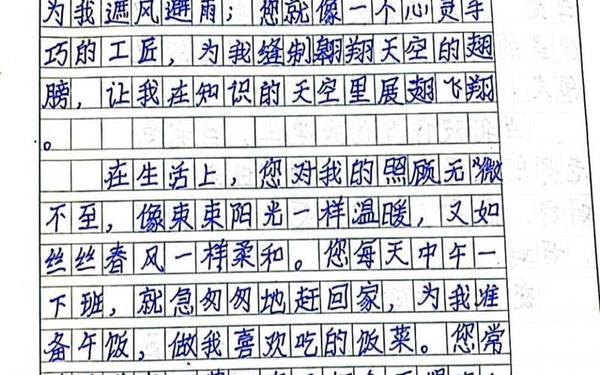 为我遮风避雨；您就像一个心灵手
巧的工匠，为我缝制翱翔天空的翅
膀，让我在知识的天空里展翅飞翔
。
在生活上，您对我的照顾无微
不至，像束束阳光一样温暖，又如
丝丝春风一样柔和。您每天中午一
下班，就急匆匆地赶回家，为我准
备午饭，做我喜欢吃的饭菜。您常